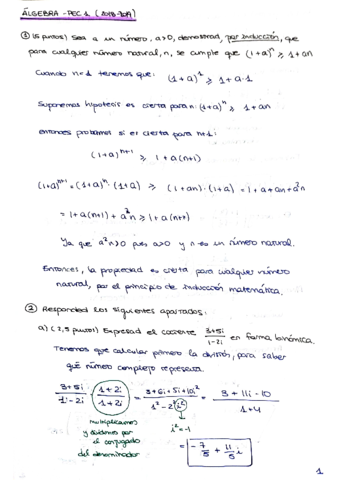 ÁLGEBRA - PEC 1 (2018-2019)
① (5 puntos) Sea a un número, a>0, demostrad, por inducción, que
para cualquier número natural, n, se cumple que (1+a)ⁿ ≥ 1+an
Cuando n=1 tenemos que: (1+a)¹ ≥ 1+a·1
Suponemos hipótesis es cierta para n: (1+a)ⁿ ≥ 1+an
entonces probamos si es cierta para n+1:
(1+a)ⁿ⁺¹ ≥ 1+a(n+1)
(1+a)ⁿ⁺¹ = (1+a)ⁿ·(1+a) ≥ (1+an)·(1+a) = 1+a+an+a²n
= 1+a(n+1)+a²n ≥ 1+a(n+1)
Ya que a²n>0 pues a>0 y n es un número natural.
Entonces, la propiedad es cierta para cualquier número
natural, por el principio de inducción matemática.
② Responded los siguientes apartados:
a) (2,5 puntos) Expresad el cociente (3+5i)/(1-2i) en forma binómica.
Tenemos que calcular primero la división, para saber
qué número complejo representa.
(3+5i)/(1-2i) · (1+2i)/(1+2i) = (3+6i+5i+10i²)/(1²-2²i²) = (3+11i-10)/(1+4)
multiplicamos
y dividimos por
el conjugado
del denominador
i²=-1
= -7/5 + 11/5 i
1